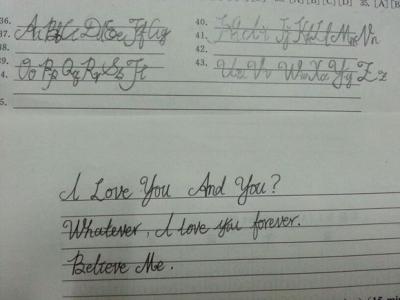 36.
37. Aa Bb Cc Dd Ee Ff Gg
38.
39. Oo Pp Qq Rr Ss Tt
40.
41. Ii Jj Kk Ll Mm Nn
42.
43. Uu Vv Ww Xx Yy Zz
I Love You And You?
Whatever, I love you forever.
Believe Me.